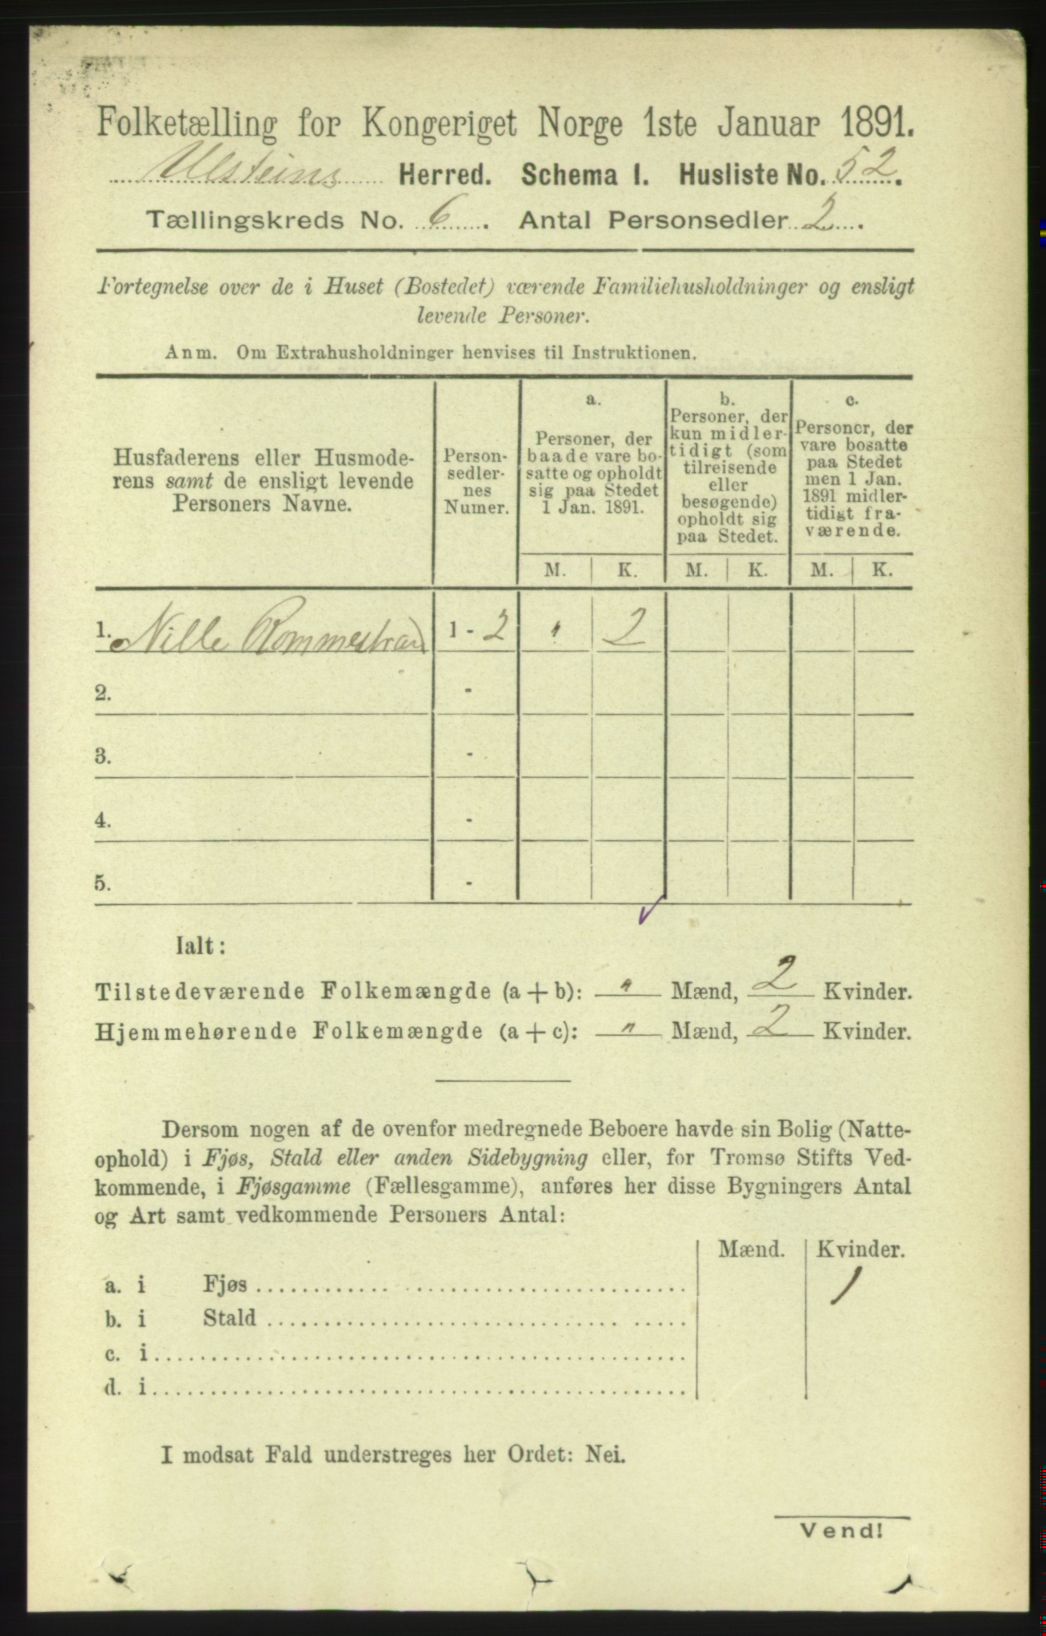 Folketælling for Kongeriget Norge 1ste Januar 1891.
Ulsteins Herred. Schema I. Husliste No. 52.
Tællingskreds No. 6. Antal Personsedler 2.
Fortegnelse over de i Huset (Bostedet) værende Familiehusholdninger og ensligt
levende Personer.
Anm. Om Extrahusholdninger henvises til Instruktionen.
Husfaderens eller Husmode-
rens samt de ensligt levende
Personers Navne.
Person-
sedler-
nes
Numer.
a.
Personer, der
baade vare bo-
satte og opholdt
sig paa Stedet
1 Jan. 1891.
b.
Personer, der
kun midler-
tidigt (som
tilreisende
eller
besøgende)
opholdt sig
paa Stedet.
c.
Personer, der
vare bosatte
paa Stedet
men 1 Jan.
1891 midler-
tidigt fra-
værende.
M. K. M. K. M. K.
1. Nille Rommestrand 1 - 2 " 2
2. -
3. -
4. -
5. -
Ialt:
Tilstedeværende Folkemængde (a + b): " Mænd, 2 Kvinder.
Hjemmehørende Folkemængde (a + c): " Mænd, 2 Kvinder.
Dersom nogen af de ovenfor medregnede Beboere havde sin Bolig (Natte-
ophold) i Fjøs, Stald eller anden Sidebygning eller, for Tromsø Stifts Ved-
kommende, i Fjøsgamme (Fællesgamme), anføres her disse Bygningers Antal
og Art samt vedkommende Personers Antal:
Mænd. Kvinder.
a. i Fjøs 1
b. i Stald
c. i
d. i
I modsat Fald understreges her Ordet: Nei.
Vend!